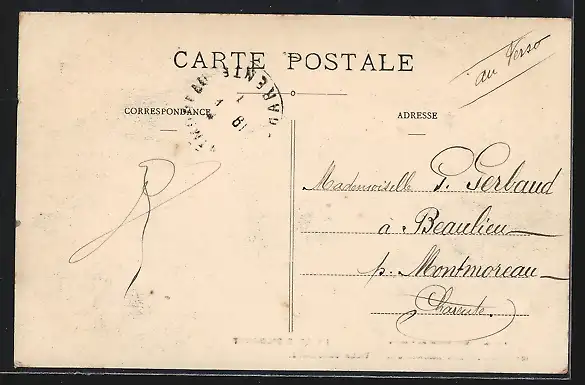 au Verso
CARTE POSTALE
CORRESPONDANCE
ADRESSE
Mademoiselle P. Gerbaud
à Beaulieu
p. Montmoreau
Charente.